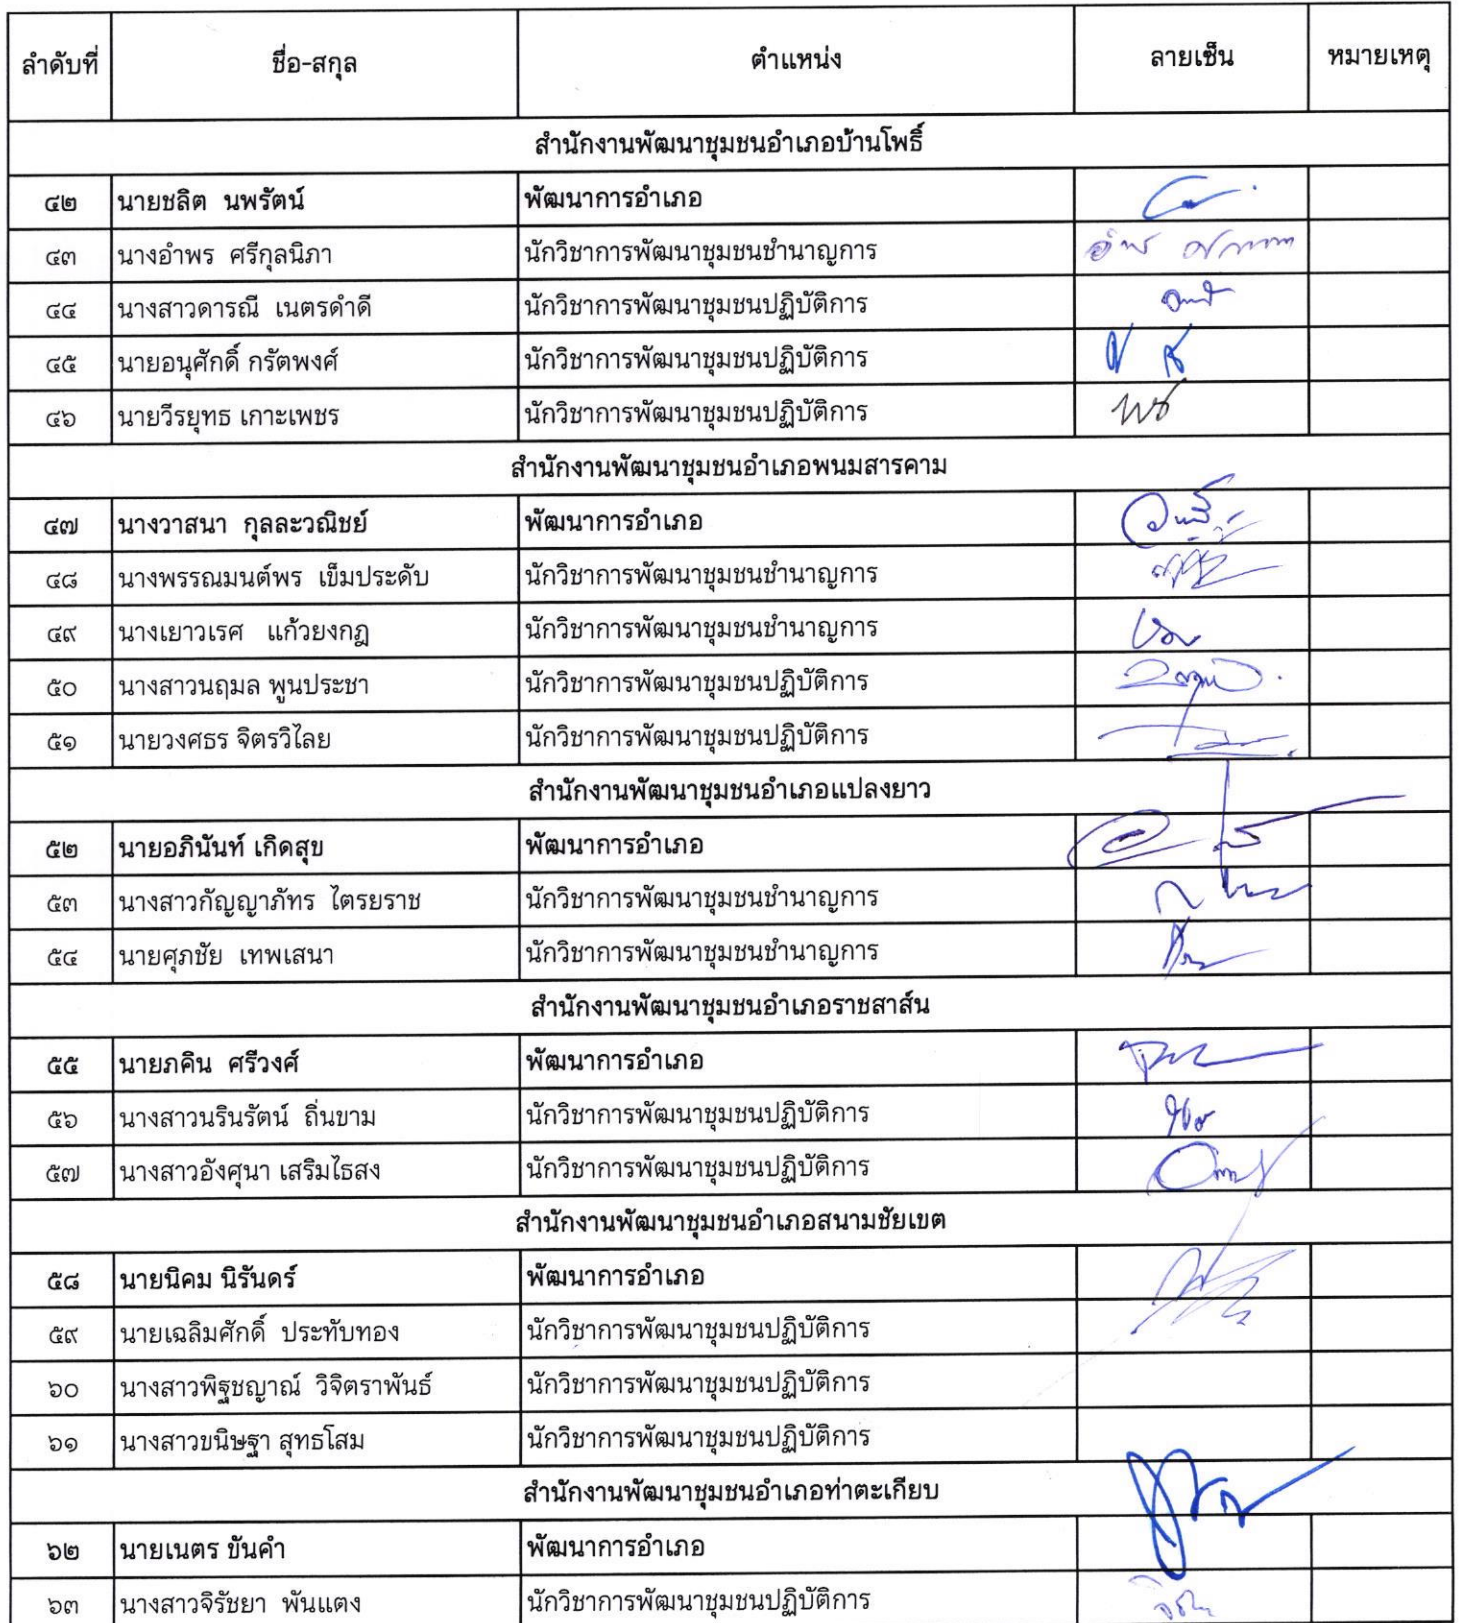 ลำดับที่ ชื่อ-สกุล ตำแหน่ง ลายเซ็น หมายเหตุ
สำนักงานพัฒนาชุมชนอำเภอบ้านโพธิ์
๔๒ นายชลิต นพรัตน์ พัฒนาการอำเภอ
๔๓ นางอำพร ศรีกุลนิภา นักวิชาการพัฒนาชุมชนชำนาญการ
๔๔ นางสาวดารณี เนตรดำดี นักวิชาการพัฒนาชุมชนปฏิบัติการ
๔๕ นายอนุศักดิ์ กรัตพงศ์ นักวิชาการพัฒนาชุมชนปฏิบัติการ
๔๖ นายวีรยุทธ เกาะเพชร นักวิชาการพัฒนาชุมชนปฏิบัติการ
สำนักงานพัฒนาชุมชนอำเภอพนมสารคาม
๔๗ นางวาสนา กุลละวณิชย์ พัฒนาการอำเภอ
๔๘ นางพรรณมนต์พร เข็มประดับ นักวิชาการพัฒนาชุมชนชำนาญการ
๔๙ นางเยาวเรศ แก้วยงกฎ นักวิชาการพัฒนาชุมชนชำนาญการ
๕๐ นางสาวนฤมล พูนประชา นักวิชาการพัฒนาชุมชนปฏิบัติการ
๕๑ นายวงศธร จิตรวิไลย นักวิชาการพัฒนาชุมชนปฏิบัติการ
สำนักงานพัฒนาชุมชนอำเภอแปลงยาว
๕๒ นายอภินันท์ เกิดสุข พัฒนาการอำเภอ
๕๓ นางสาวกัญญาภัทร ไตรยราช นักวิชาการพัฒนาชุมชนชำนาญการ
๕๔ นายศุภชัย เทพเสนา นักวิชาการพัฒนาชุมชนชำนาญการ
สำนักงานพัฒนาชุมชนอำเภอราชสาส์น
๕๕ นายภคิน ศรีวงศ์ พัฒนาการอำเภอ
๕๖ นางสาวนรินรัตน์ ถิ่นขาม นักวิชาการพัฒนาชุมชนปฏิบัติการ
๕๗ นางสาวอังศุนา เสริมไธสง นักวิชาการพัฒนาชุมชนปฏิบัติการ
สำนักงานพัฒนาชุมชนอำเภอสนามชัยเขต
๕๘ นายนิคม นิรันดร์ พัฒนาการอำเภอ
๕๙ นายเฉลิมศักดิ์ ประทับทอง นักวิชาการพัฒนาชุมชนปฏิบัติการ
๖๐ นางสาวพิฐชญาณ์ วิจิตราพันธ์ นักวิชาการพัฒนาชุมชนปฏิบัติการ
๖๑ นางสาวขนิษฐา สุทธโสม นักวิชาการพัฒนาชุมชนปฏิบัติการ
สำนักงานพัฒนาชุมชนอำเภอท่าตะเกียบ
๖๒ นายเนตร ขันคำ พัฒนาการอำเภอ
๖๓ นางสาวจิรัชยา พันแตง นักวิชาการพัฒนาชุมชนปฏิบัติการ